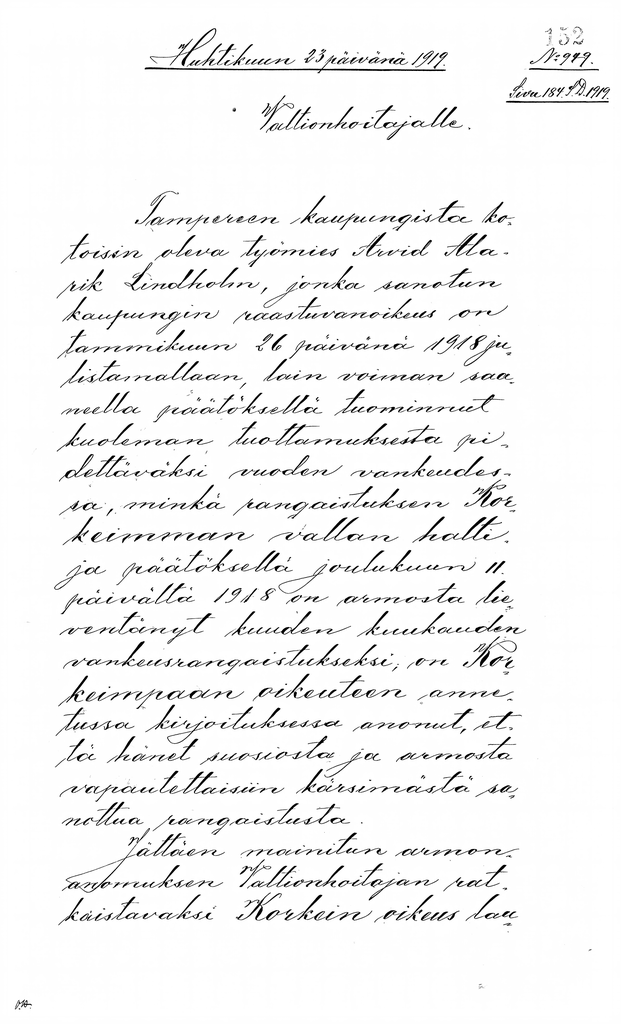 152
Huhtikuun 23 päivänä 1919.
No 949.
Sivu 184. S.D. 1919.
Valtionhoitajalle.
Tampereen kaupungista ko-
toisin oleva työmies Arvid Ala-
rik Lindholm, jonka sanotun
kaupungin raastuvanoikeus on
tammikuun 26 päivänä 1918 ju-
listamallaan, lain voiman saa-
neella päätöksellä tuominnut
kuoleman tuottamuksesta pi-
dettäväksi vuoden vankeudes-
sa, minkä rangaistuksen Kor-
keimman vallan halti-
ja päätöksellä joulukuun 11.
päivältä 1918 on armosta lie-
ventänyt kuuden kuukauden
vankeusrangaistukseksi, on Kor-
keimpaan oikeuteen anne-
tussa kirjoituksessa anonut, et-
tä hänet suosiosta ja armosta
vapautettaisiin kärsimästä sa-
nottua rangaistusta.
Jättäen mainitun armon-
anomuksen Valtionhoitajan rat-
kaistavaksi Korkein oikeus lau-